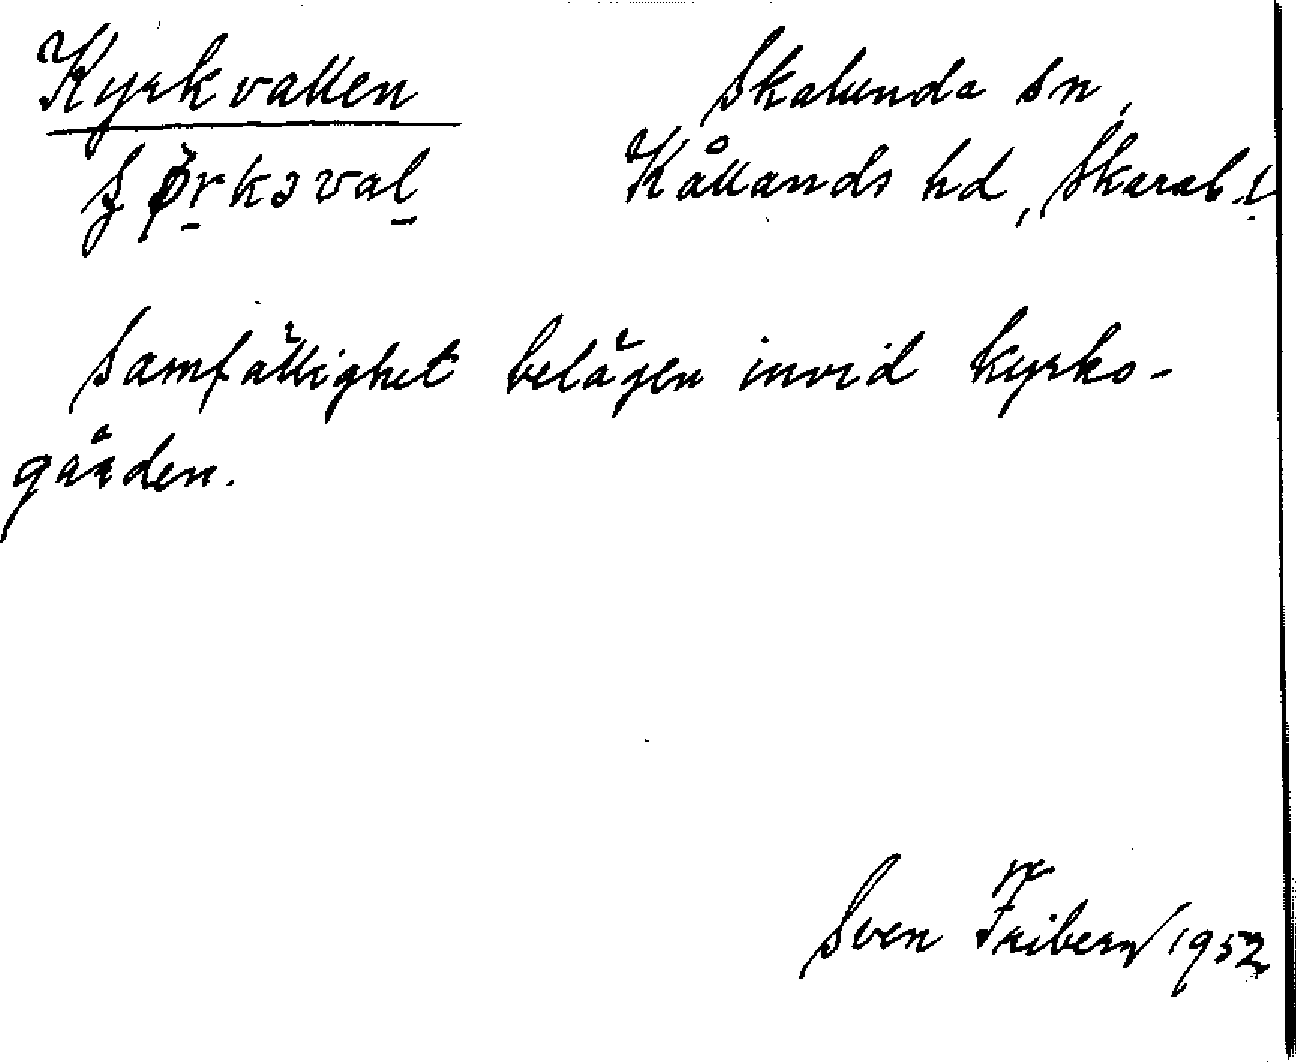 Kyrkvallen
Skalunda sn,
Kållands hd, Skarab. l.
Samfällighet belägen invid kyrko-
gården.
Sven Friberg 1952